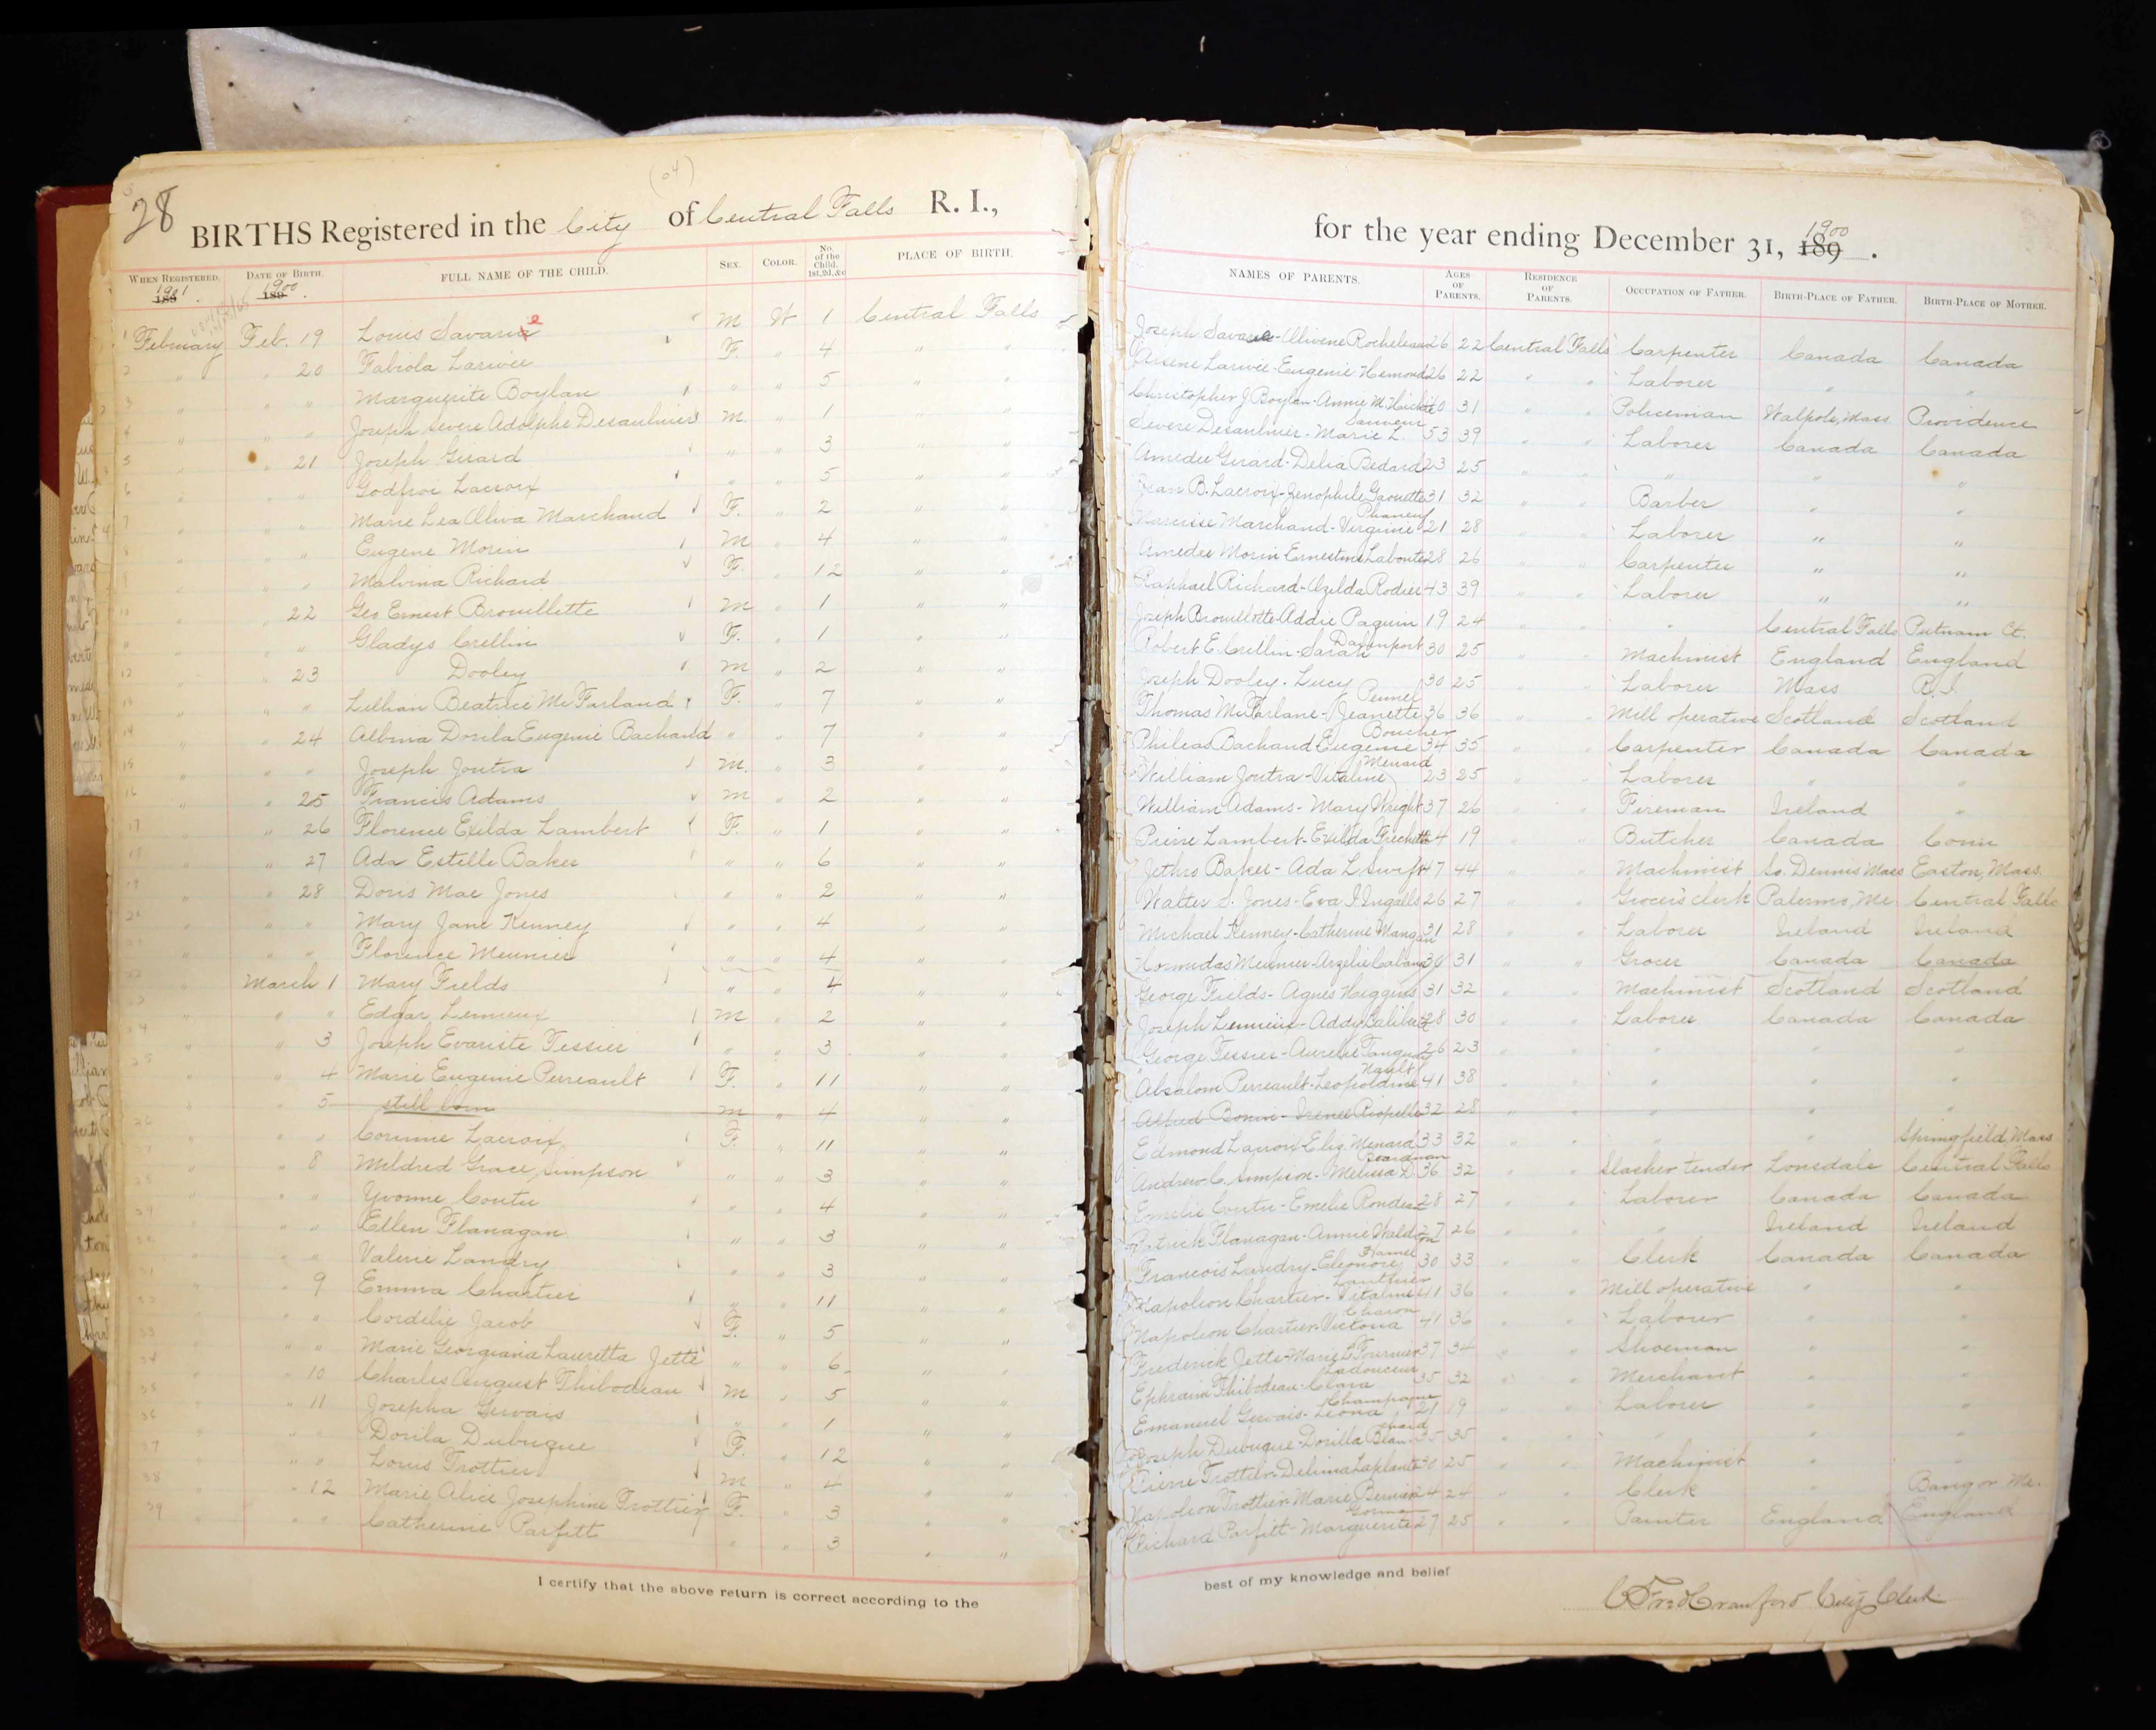 28
(04)
BIRTHS Registered in the City of Central Falls R. I.,
WHEN REGISTERED. 1901 189 .
DATE OF BIRTH. 1900 189 .
FULL NAME OF THE CHILD.
SEX.
COLOR.
No. of the Child. 1st, 2d, &c
PLACE OF BIRTH.
1 February Feb. 19 Louis Savarie M W 1 Central Falls
2 " " 20 Fabiola Larivee F. " 4 " "
3 " " " Marguerite Boylan " " 5 " "
4 " " " Joseph Severe Adolphe Desaulniers M. " 1 " "
5 " " 21 Joseph Girard " " 3 " "
6 " " " Godfroi Lacroix " " 5 " "
7 " " " Marie Lea Oliva Marchand F. " 2 " "
8 " " " Eugene Morin M " 4 " "
9 " " " Malvina Richard F. " 12 " "
10 " " 22 Geo Ernest Brouillette M " 1 " "
11 " " " Gladys Crellin F. " 1 " "
12 " " 23 Dooley M " 2 " "
13 " " " Lillian Beatrice McFarland F. " 7 " "
14 " " 24 Albina Dorila Eugenie Bachand " " 7 " "
15 " " " Joseph Joutra M. " 3 " "
16 " " 25 Francis Adams M " 2 " "
17 " " 26 Florence Exilda Lambert F. " 1 " "
18 " " 27 Ada Estelle Baker " " 6 " "
19 " " 28 Doris Mae Jones " " 2 " "
20 " " " Mary Jane Kenney " " 4 " "
21 " " " Florence Meunier " " 4 " "
22 " March 1 Mary Fields " " 4 " "
23 " " " Edgar Lemieux M " 2 " "
24 " " 3 Joseph Evariste Tessier " " 3 " "
25 " " 4 Marie Eugenie Perreault F. " 11 " "
" " 5 still born M " 4 " "
26 " " " Corinne Lacroix F. " 11 " "
27 " " 8 Mildred Grace Simpson " " 3 " "
28 " " " Yvonne Coutu " " 4 " "
29 " " " Ellen Flanagan " " 3 " "
30 " " " Valerie Landry " " 3 " "
31 " " 9 Emma Chartier " " 11 " "
32 " " " Cordelie Jacob F. " 5 " "
33 " " " Marie Georgiana Lauretta Jette " " 6 " "
34 " " 10 Charles August Thibodeau M " 5 " "
35 " " 11 Josepha Gervais " " 1 " "
36 " " " Dorila Dubuque F. " 12 " "
37 " " " Louis Trottier M " 4 " "
38 " " 12 Marie Alice Josephine Trottier F. " 3 " "
39 " " " Catherine Parfitt " " 3 " "
I certify that the above return is correct according to the
for the year ending December 31, 1900 189 .
NAMES OF PARENTS.
AGES OF PARENTS.
RESIDENCE OF PARENTS.
OCCUPATION OF FATHER.
BIRTH-PLACE OF FATHER.
BIRTH-PLACE OF MOTHER.
Joseph Savarie - Olivine Rocheleau 26 22 Central Falls Carpenter Canada Canada
Arsene Larivee - Eugenie Hemond 26 22 " " Laborer " "
Christopher J Boylan - Annie M. 31 " " Policeman Walpole, Mass. Providence
Severe Desaulnier - Marie L. Sauveur 53 39 " " Laborer Canada Canada
Amedee Girard - Delia Bedard 23 25 " " " " "
Jean B. Lacroix - Zenophile Gaouette 31 32 " " Barber " "
Narcisse Marchand - Virginie Phaneuf 21 28 " " Laborer " "
Amedee Morin Ernestine Laboute 28 26 " " Carpenter " "
Raphael Richard - Ozilda Rodier 43 39 " " Laborer " "
Joseph Brouillette - Addie Paquin 19 24 " " " Central Falls Putnam Ct.
Robert E. Crellin - Sarah Davenport 30 25 " " Machinist England England
Joseph Dooley. Lucy 30 25 " " Laborer Mass R.I.
Thomas McFarlane - Jeanette Penney 36 36 " " Mill operative Scotland Scotland
Phileas Bachand Eugenie Boucher 34 35 " " Carpenter Canada Canada
William Joutra - Vitaline Menard 23 25 " " Laborer " "
William Adams - Mary Wright 37 26 " " Fireman Ireland "
Pierre Lambert - Exilda Frechette 24 19 " " Butcher Canada Conn
Jethro Baker - Ada L Swift 47 44 " " Machinist So. Dennis Mass Easton, Mass.
Walter S. Jones - Eva I Ingalls 26 27 " " Grocer's clerk Palermo, Me. Central Falls
Michael Kenney - Catherine Mangan 31 28 " " Laborer Ireland Ireland
Hormidas Meunier - Arzelie Cabana 30 31 " " Grocer Canada Canada
George Fields - Agnes Higgins 31 32 " " Machinist Scotland Scotland
Joseph Lemieux - Addy Caliberte 28 30 " " Laborer Canada Canada
George Tessier - Aurelie Tanguay 26 23 " " " " "
Absalom Perreault - Leopoldine Nault 41 38 " " " " "
Alfred Bonin - Irenee Riopelle 32 28 " " " " "
Edmond Lacroix - Eliz. Menard 33 32 " " " " Springfield Mass
Andrew C. Simpson - Melissa D. Boardman 36 32 " " Slasher tender Lonsdale Central Falls
Emelie Coutu - Emelie Rondeau 28 27 " " Laborer Canada Canada
Patrick Flanagan - Annie Waldron 27 26 " " " Ireland Ireland
Francois Landry - Eleonore Hamel 30 33 " " Clerk Canada Canada
Napoleon Chartier - Vitaline Lauthier 41 36 " " Mill operative " "
Napoleon Chartier - Victoria Charon 41 36 " " Laborer " "
Frederick Jette - Marie L Fournier 37 34 " " Shoeman " "
Ephraim Thibodeau - Clara Ladouceur 35 32 " " Merchant " "
Emanuel Gervais - Leona Champagne 21 19 " " Laborer " "
Joseph Dubuque - Dorilla Beauchard 35 35 " " " " "
Pierre Trottier - Delima Laplante 30 25 " " Machinist " "
Napoleon Trottier Marie Bernier 24 24 " " Clerk " Bangor Me.
Richard Parfitt - Marguerite Gorman 27 25 " " Painter England England
best of my knowledge and belief
C Fred Crawford City Clerk